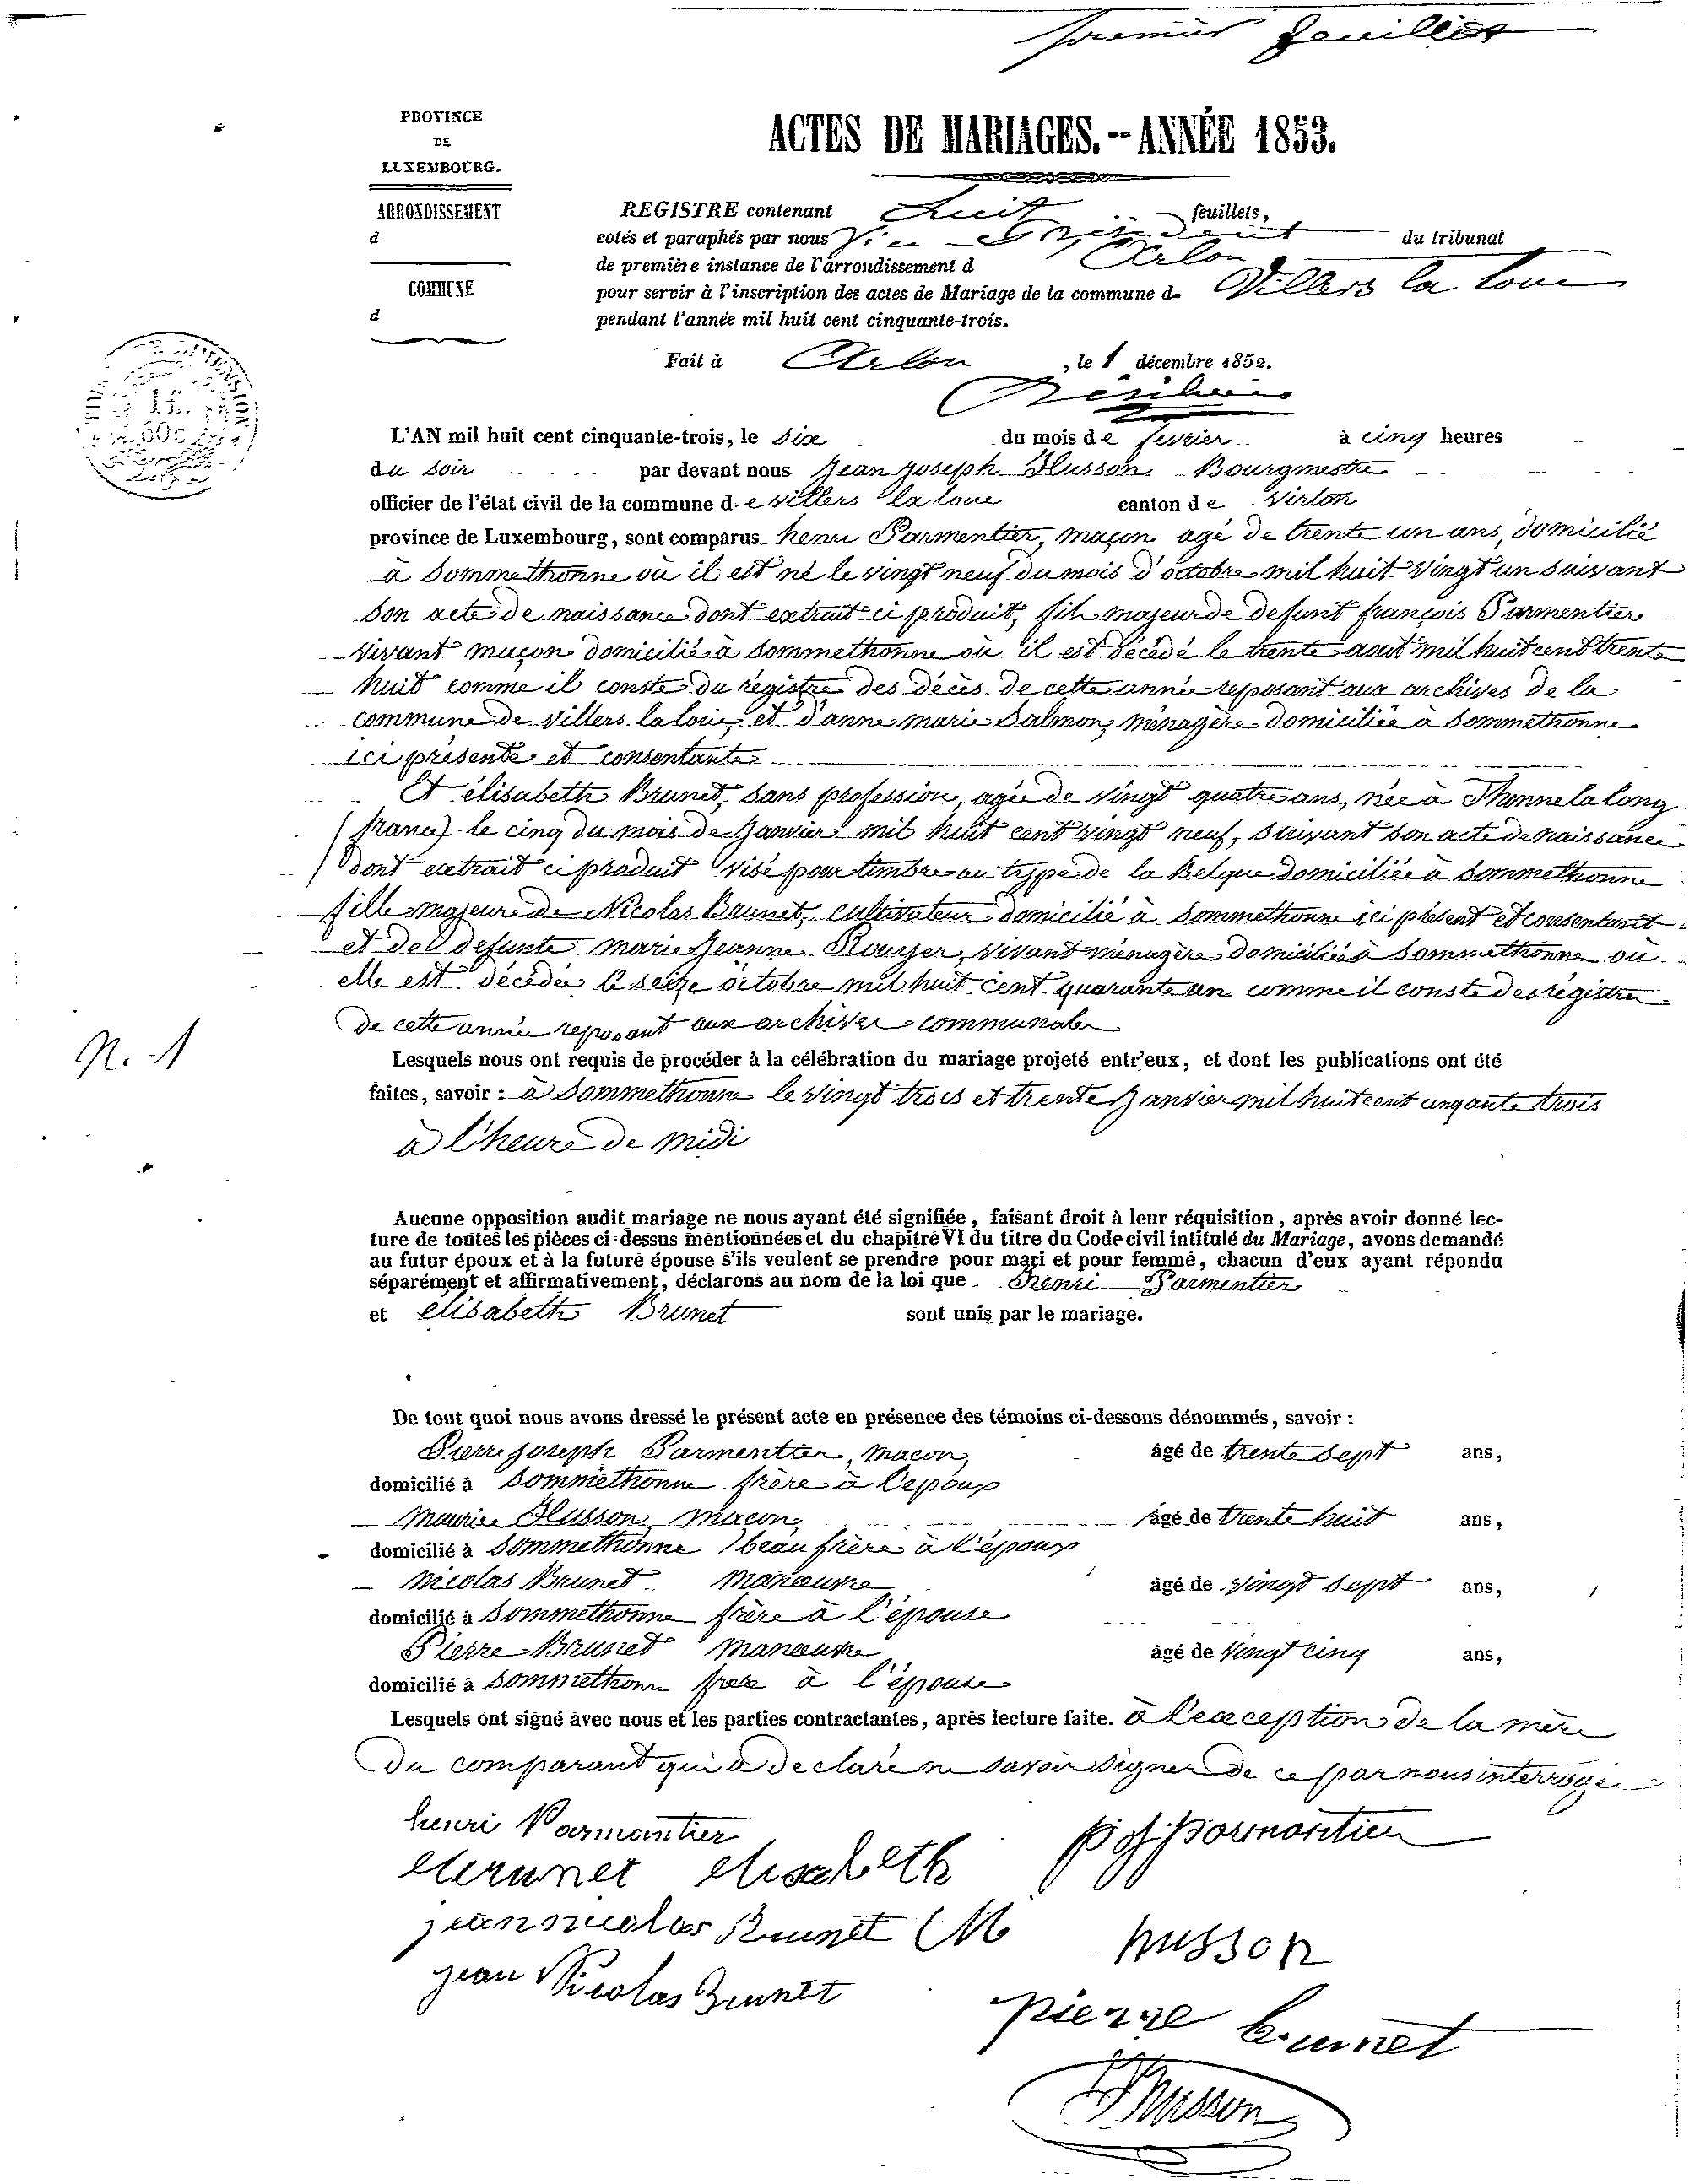 premier feuillet
PROVINCE
DE
LUXEMBOURG.
ARRONDISSEMENT
d
COMMUNE
d
ACTES DE MARIAGES.--ANNÉE 1853.
REGISTRE contenant huit feuillets,
cotés et paraphés par nous Vice-Président du tribunal
de première instance de l'arrondissement d Arlon
pour servir à l'inscription des actes de Mariage de la commune de Villers la loue
pendant l'année mil huit cent cinquante-trois.
Fait à Arlon, le 1 décembre 1852.
L'AN mil huit cent cinquante-trois, le six du mois de fevrier à cinq heures
du soir par devant nous Jean joseph Husson Bourgmestre
officier de l'état civil de la commune de villers la loue canton de Virton
province de Luxembourg, sont comparus henri Parmentier, maçon agé de trente un ans, domicilié
à Sommethonne où il est né le vingt neuf du mois d'octobre mil huit vingt un suivant
son acte de naissance dont extrait ci produit, fils majeur de defunt françois Parmentier
vivant maçon domicilié à sommethonne où il est décédé le trente aout mil huit cent trente
huit comme il conste du régistre des décès de cette année reposant aux archives de la
commune de villers la loue, et d'anne marie Salmon, ménagère domiciliée à Sommethonne
ici présente et consentante
Et élisabeth Brunet, sans profession, agée de vingt quatre ans, née à Thonnelalong
(france) le cinq du mois de Janvier mil huit cent vingt neuf, suivant son acte de naissance
dont extrait ci produit visé pour timbre au type de la Belgque domiciliée à Sommethonne
fille majeure de Nicolas Brunet, cultivateur domicilié à Sommethonne ici présent et consentant
et de defunte marie Jeanne Rouyer, vivant ménagère domiciliée à Sommethonne où
elle est décédée le seize octobre mil huit cent quarante un comme il conste des régistre
de cette année reposant aux archives communales
N. 1
Lesquels nous ont requis de procéder à la célébration du mariage projeté entr'eux, et dont les publications ont été
faites, savoir : à Sommethonne le vingt trois et trente Janvier mil huit cent cinqante trois
à l'heure de midi
Aucune opposition audit mariage ne nous ayant été signifiée, faisant droit à leur réquisition, après avoir donné lec-
ture de toutes les pièces ci-dessus mentionnées et du chapitre VI du titre du Code civil intitulé du Mariage, avons demandé
au futur époux et à la future épouse s'ils veulent se prendre pour mari et pour femme, chacun d'eux ayant répondu
séparément et affirmativement, déclarons au nom de la loi que Henri Parmentier
et élisabeth Brunet sont unis par le mariage.
De tout quoi nous avons dressé le présent acte en présence des témoins ci-dessous dénommés, savoir :
Pierre joseph Parmentier, macon, âgé de trente sept ans,
domicilié à Sommethonne frère à l'epoux
Maurice Husson macon, âgé de trente huit ans,
domicilié à Sommethonne beau frère à l'époux
Nicolas Brunet manœuvre âgé de vingt sept ans,
domicilié à Sommethonne frère à l'épouse
Pierre Brunet manœuvre âgé de vingt cinq ans,
domicilié à Sommethonne frere à l'épouse
Lesquels ont signé avec nous et les parties contractantes, après lecture faite. à l'exception de la mère
du comparant qui a declaré ne savoir signer de ce par nous interrogé
henri Parmantier
pj parmantier
ebrunet elisabeth
jean nicolas Brunet
M husson
jean Nicolas Brunet
pierre brunet
JJHusson